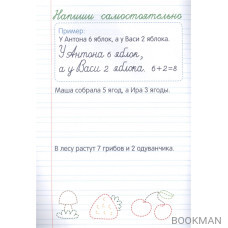 Напиши самостоятельно
Пример:
У Антона 6 яблок, а у Васи 2 яблока.
У Антона 6 яблок,
а у Васи 2 яблока. 6+2=8
Маша собрала 5 ягод, а Ира 3 ягоды.
В лесу растут 7 грибов и 2 одуванчика.
BOOKMAN